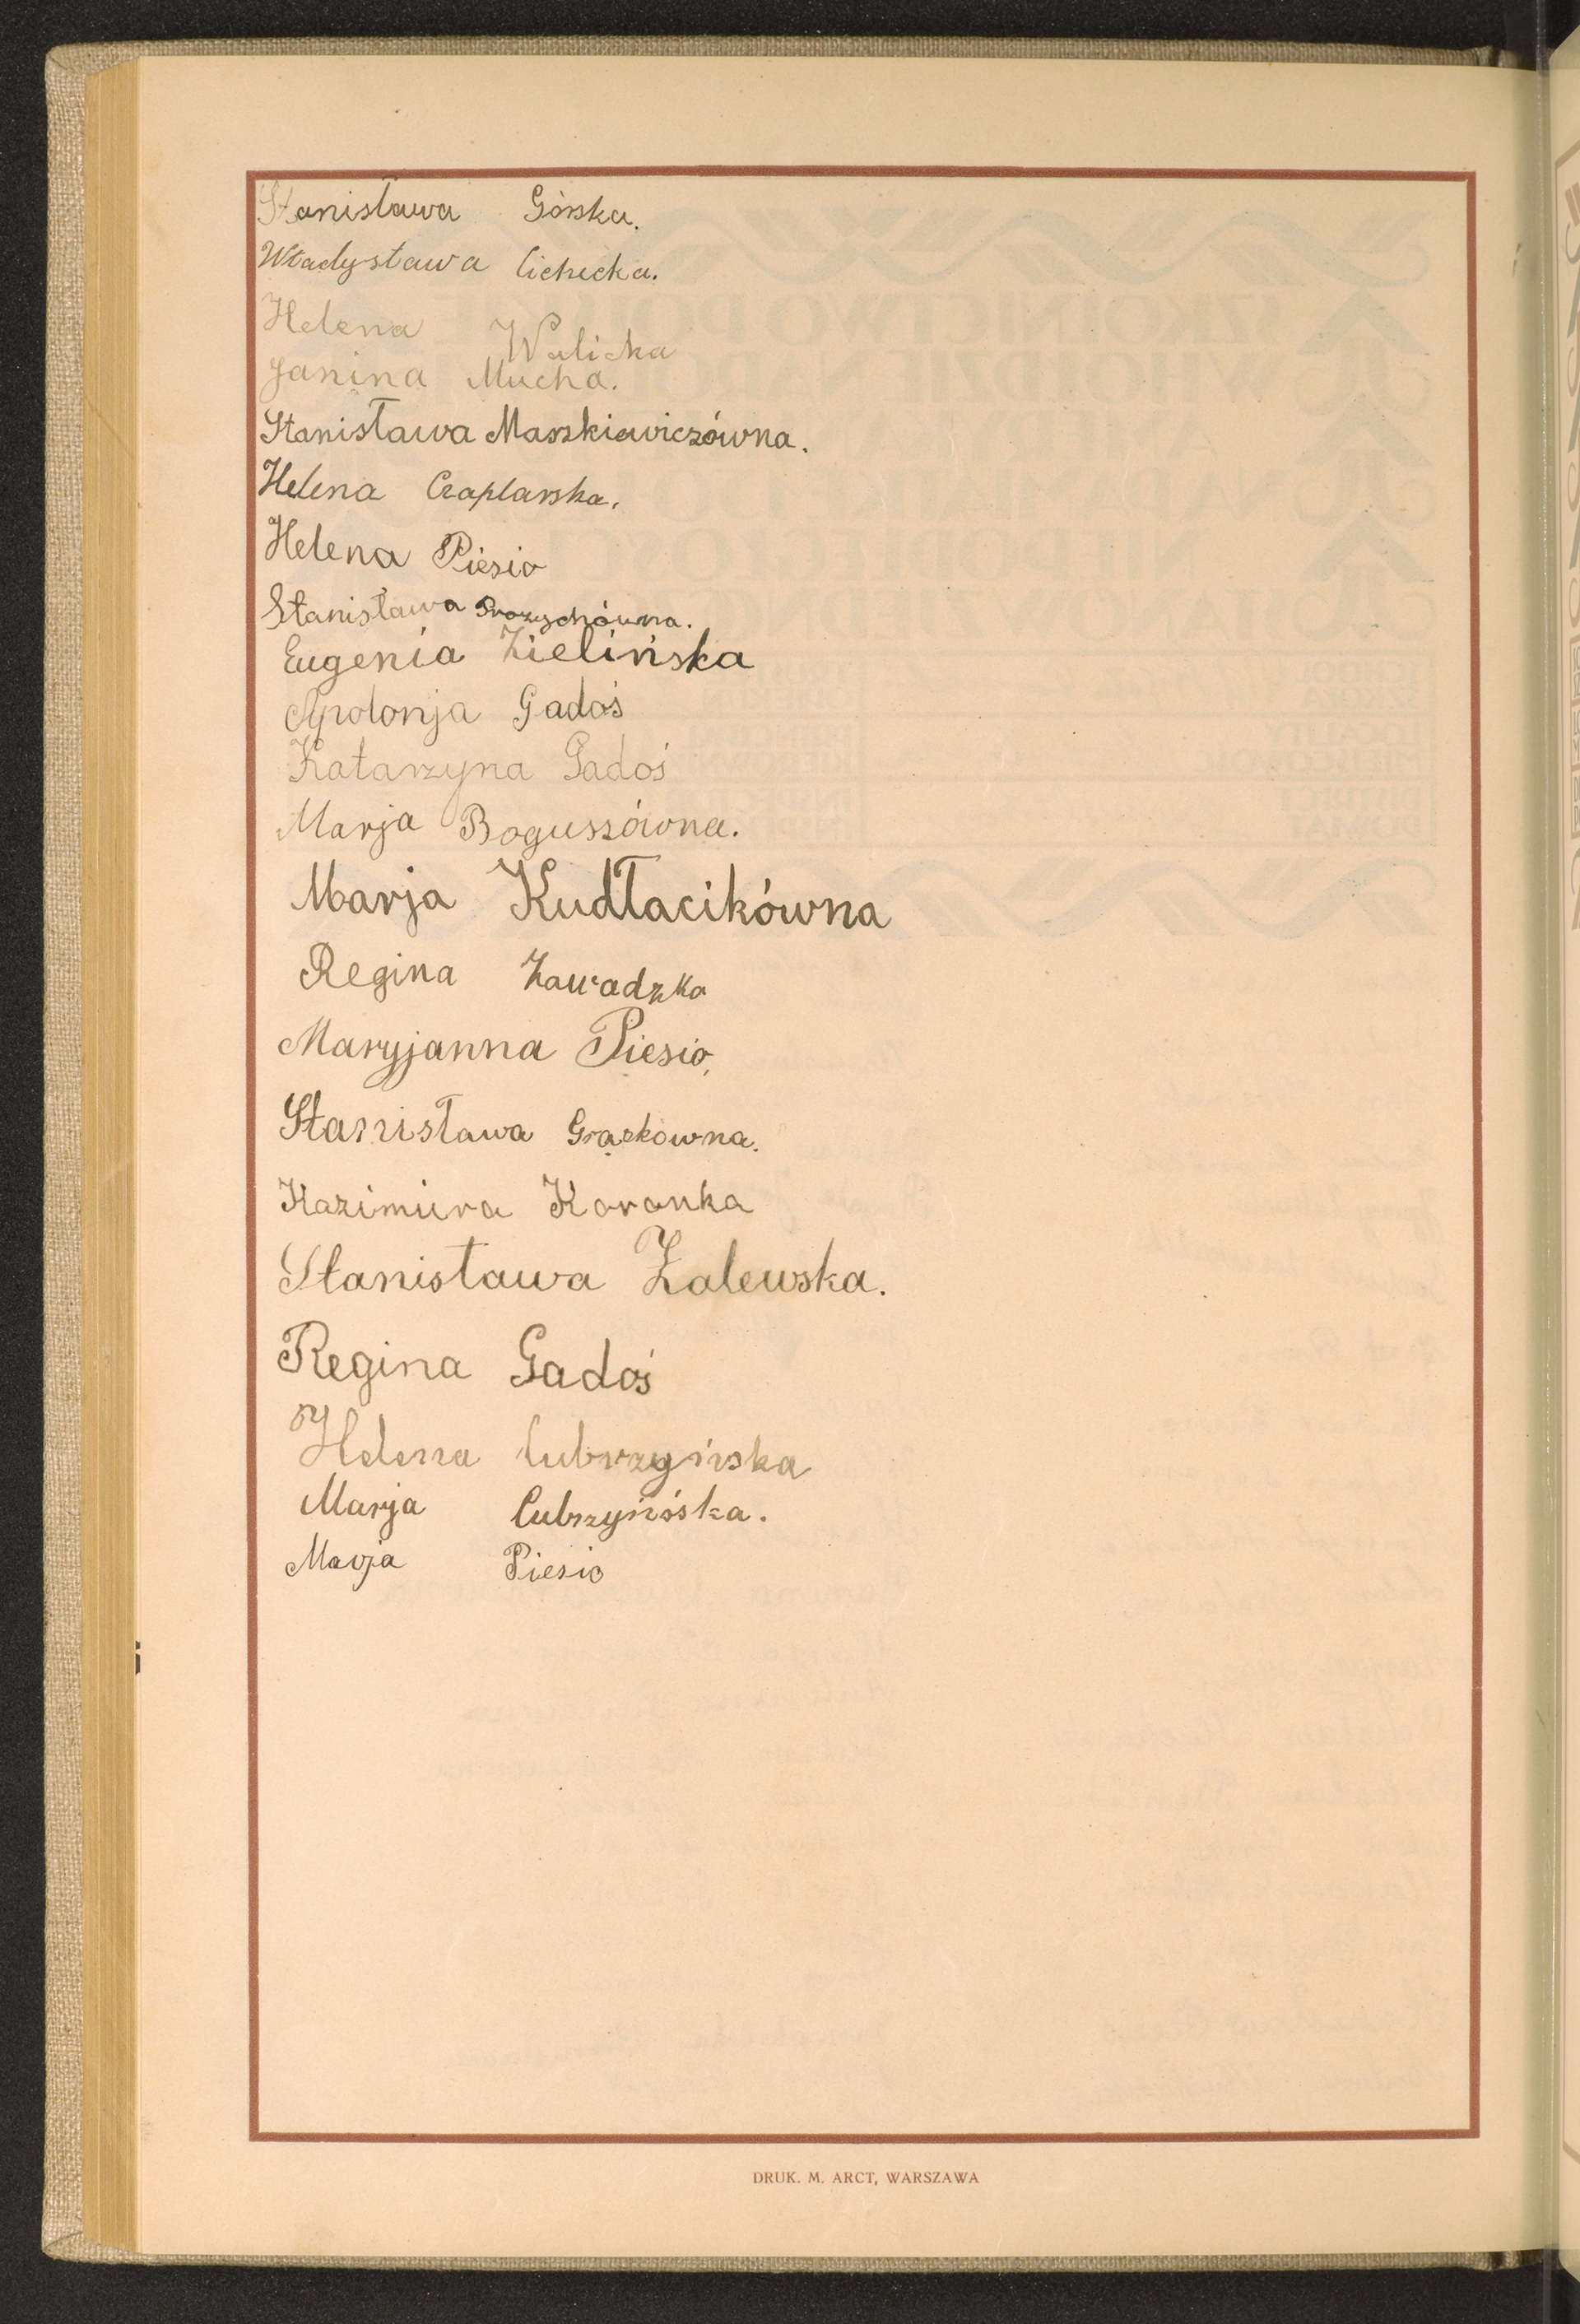 Stanisława Górska.
Władysława Cichecka.
Helena Walicka
Janina Mucha.
Stanisława Maszkiewiczówna.
Helena Czaplarska.
Helena Piesio
Stanisława
Eugenia Zielińska
Apolonja Gadoś
Katarzyna Gadoś
Marja Boguszówna.
Marja Kudłacikówna
Regina Zawadzka
Maryjanna Piesio
Stanisława Grązkówna.
Kazimiera Koronka
Stanisława Zalewska.
Regina Gadoś
Helena Cubrzyńska
Marja Cubrzyńska.
Marja Piesio
DRUK. M. ARCT, WARSZAWA